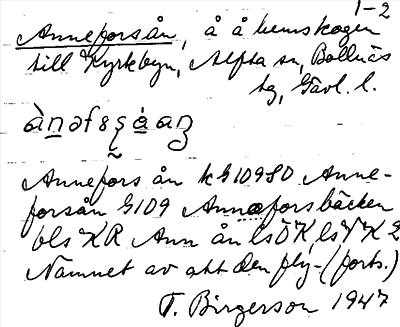 1-2
Anneforsån, å å hemskogen
till Kyrkbyn, Alfta sn, Bollnäs
tg, Gävl. l.
ànəfsṣáaṇ
Annefors ån kG109SO Anne-
forsån G109 Annæforsbäcken
bls KR Ann ån lsÖK, lsVK 2
Namnet av att den fly- (forts.)
T. Birgerson 1947